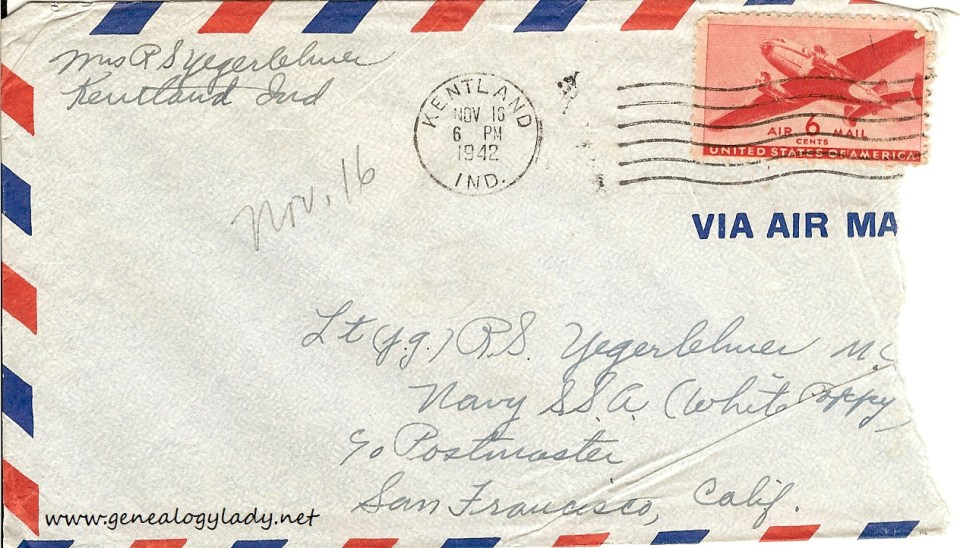 Mrs R S Yegerlehner
Kentland Ind
KENTLAND
NOV 16
6 PM
1942
IND.
AIR 6 MAIL
CENTS
UNITED STATES OF AMERICA
Nov. 16
VIA AIR MA
Lt (j.g.) R.S. Yegerlehner M.C
Navy S.S.A. (White Poppy)
c/o Postmaster
San Francisco, Calif.
www.genealogylady.net